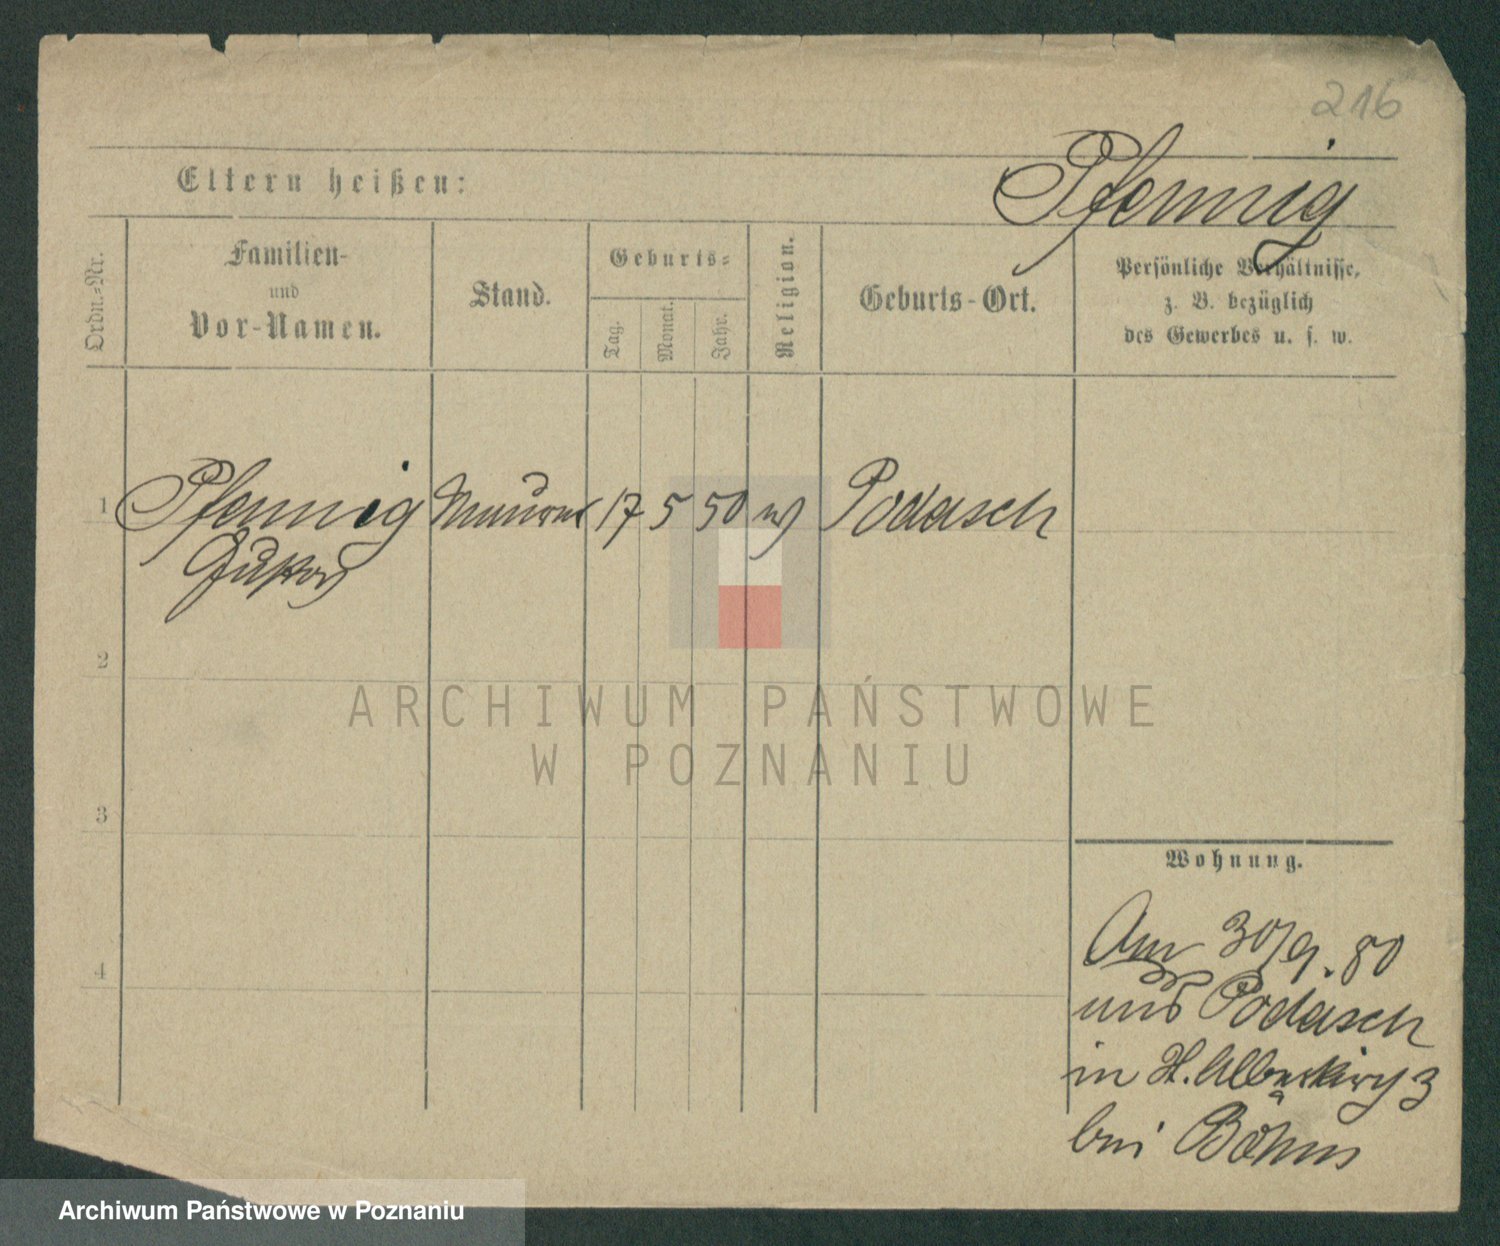 216
Pfennig
Eltern heißen:
Ordn.-Nr.
Familien-
und
Vor-Namen.
Stand.
Geburts-
Tag.
Monat.
Jahr.
Religion.
Geburts-Ort.
Persönliche Verhältnisse,
z. B. bezüglich
des Gewerbes u. s. w.
1 Pfennig Maurer 17 5 50 Podasch
Gustav
2
ARCHIWUM PAŃSTWOWE
W POZNANIU
3
Wohnung.
4
Am 30/9. 80
aus Podasch
in St. 3
bei Böhm
Archiwum Państwowe w Poznaniu